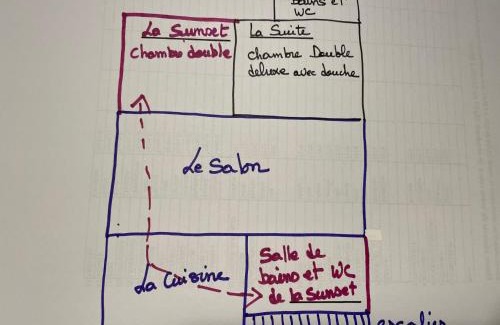 bains et
WC
La Sunset
chambre double
La Suite
chambre Double
deluxe avec douche
Le Salon
La Cuisine
Salle de
bains et WC
de la Sunset
escalier